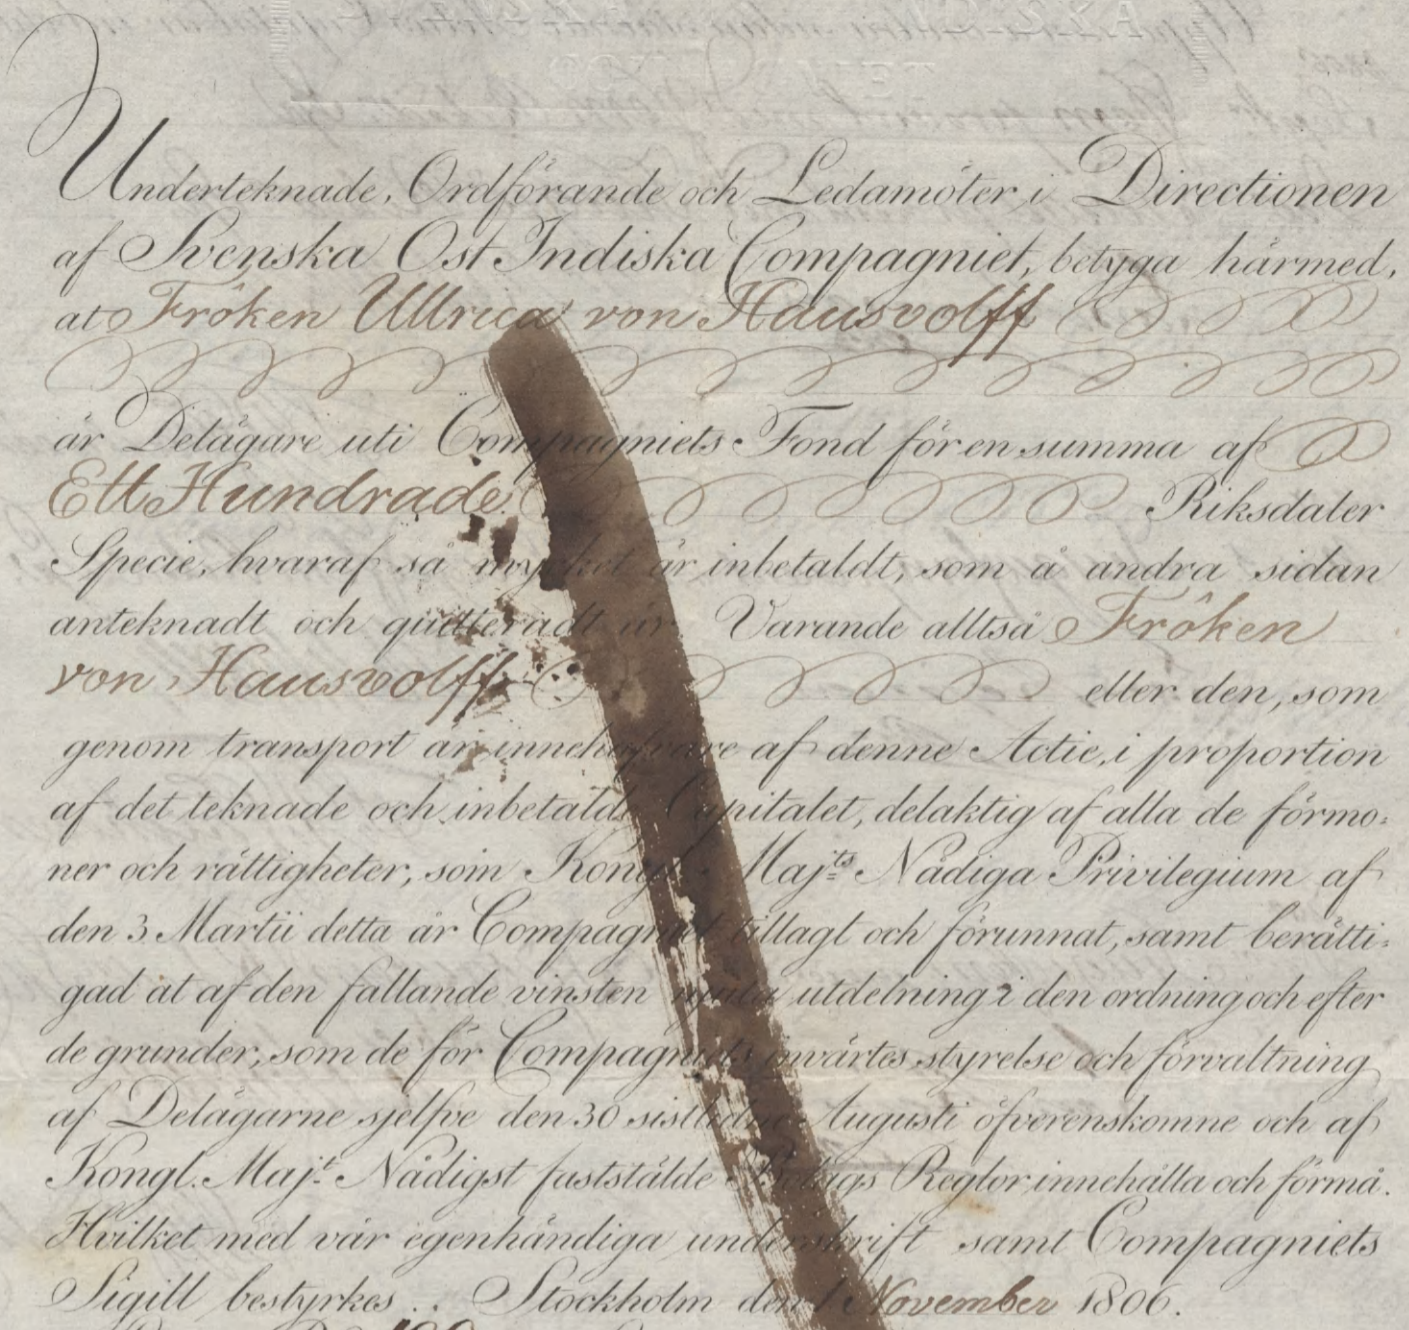 Underteknade, Ordförande och Ledamöter i Directionen
af Svenska Ost Indiska Compagniet, betyga härmed,
at Fröken Ullrica von Hausvolff
är Delägare uti Compagniets Fond för en summa af
Ett Hundrade Riksdaler
Specie, hvaraf så mycket är inbetaldt, som å andra sidan
anteknadt och quitteradt är. Varande alltså Fröken
von Hausvolff eller den, som
genom transport är innehafvare af denne Actie, i proportion
af det teknade och inbetalde Capitalet, delaktig af alla de förmo-
ner och rättigheter, som Kongl. Maj:ts Nådiga Privilegium af
den 3 Martii detta år Compagniet tillagt och förunnat, samt berätti-
gad at af den fallande vinsten njuta utdelning i den ordning och efter
de grunder, som de för Compagniets invärtes styrelse och förvaltning
af Delägarne sjelfve den 30 sistledne Augusti öfverenskomne och af
Kongl. Maj:t Nådigst faststälde Bolags Reglor innehålla och förmå.
Hvilket med vår egenhändiga underskrift samt Compagniets
Sigill bestyrkes. Stockholm den 1 November 1806.